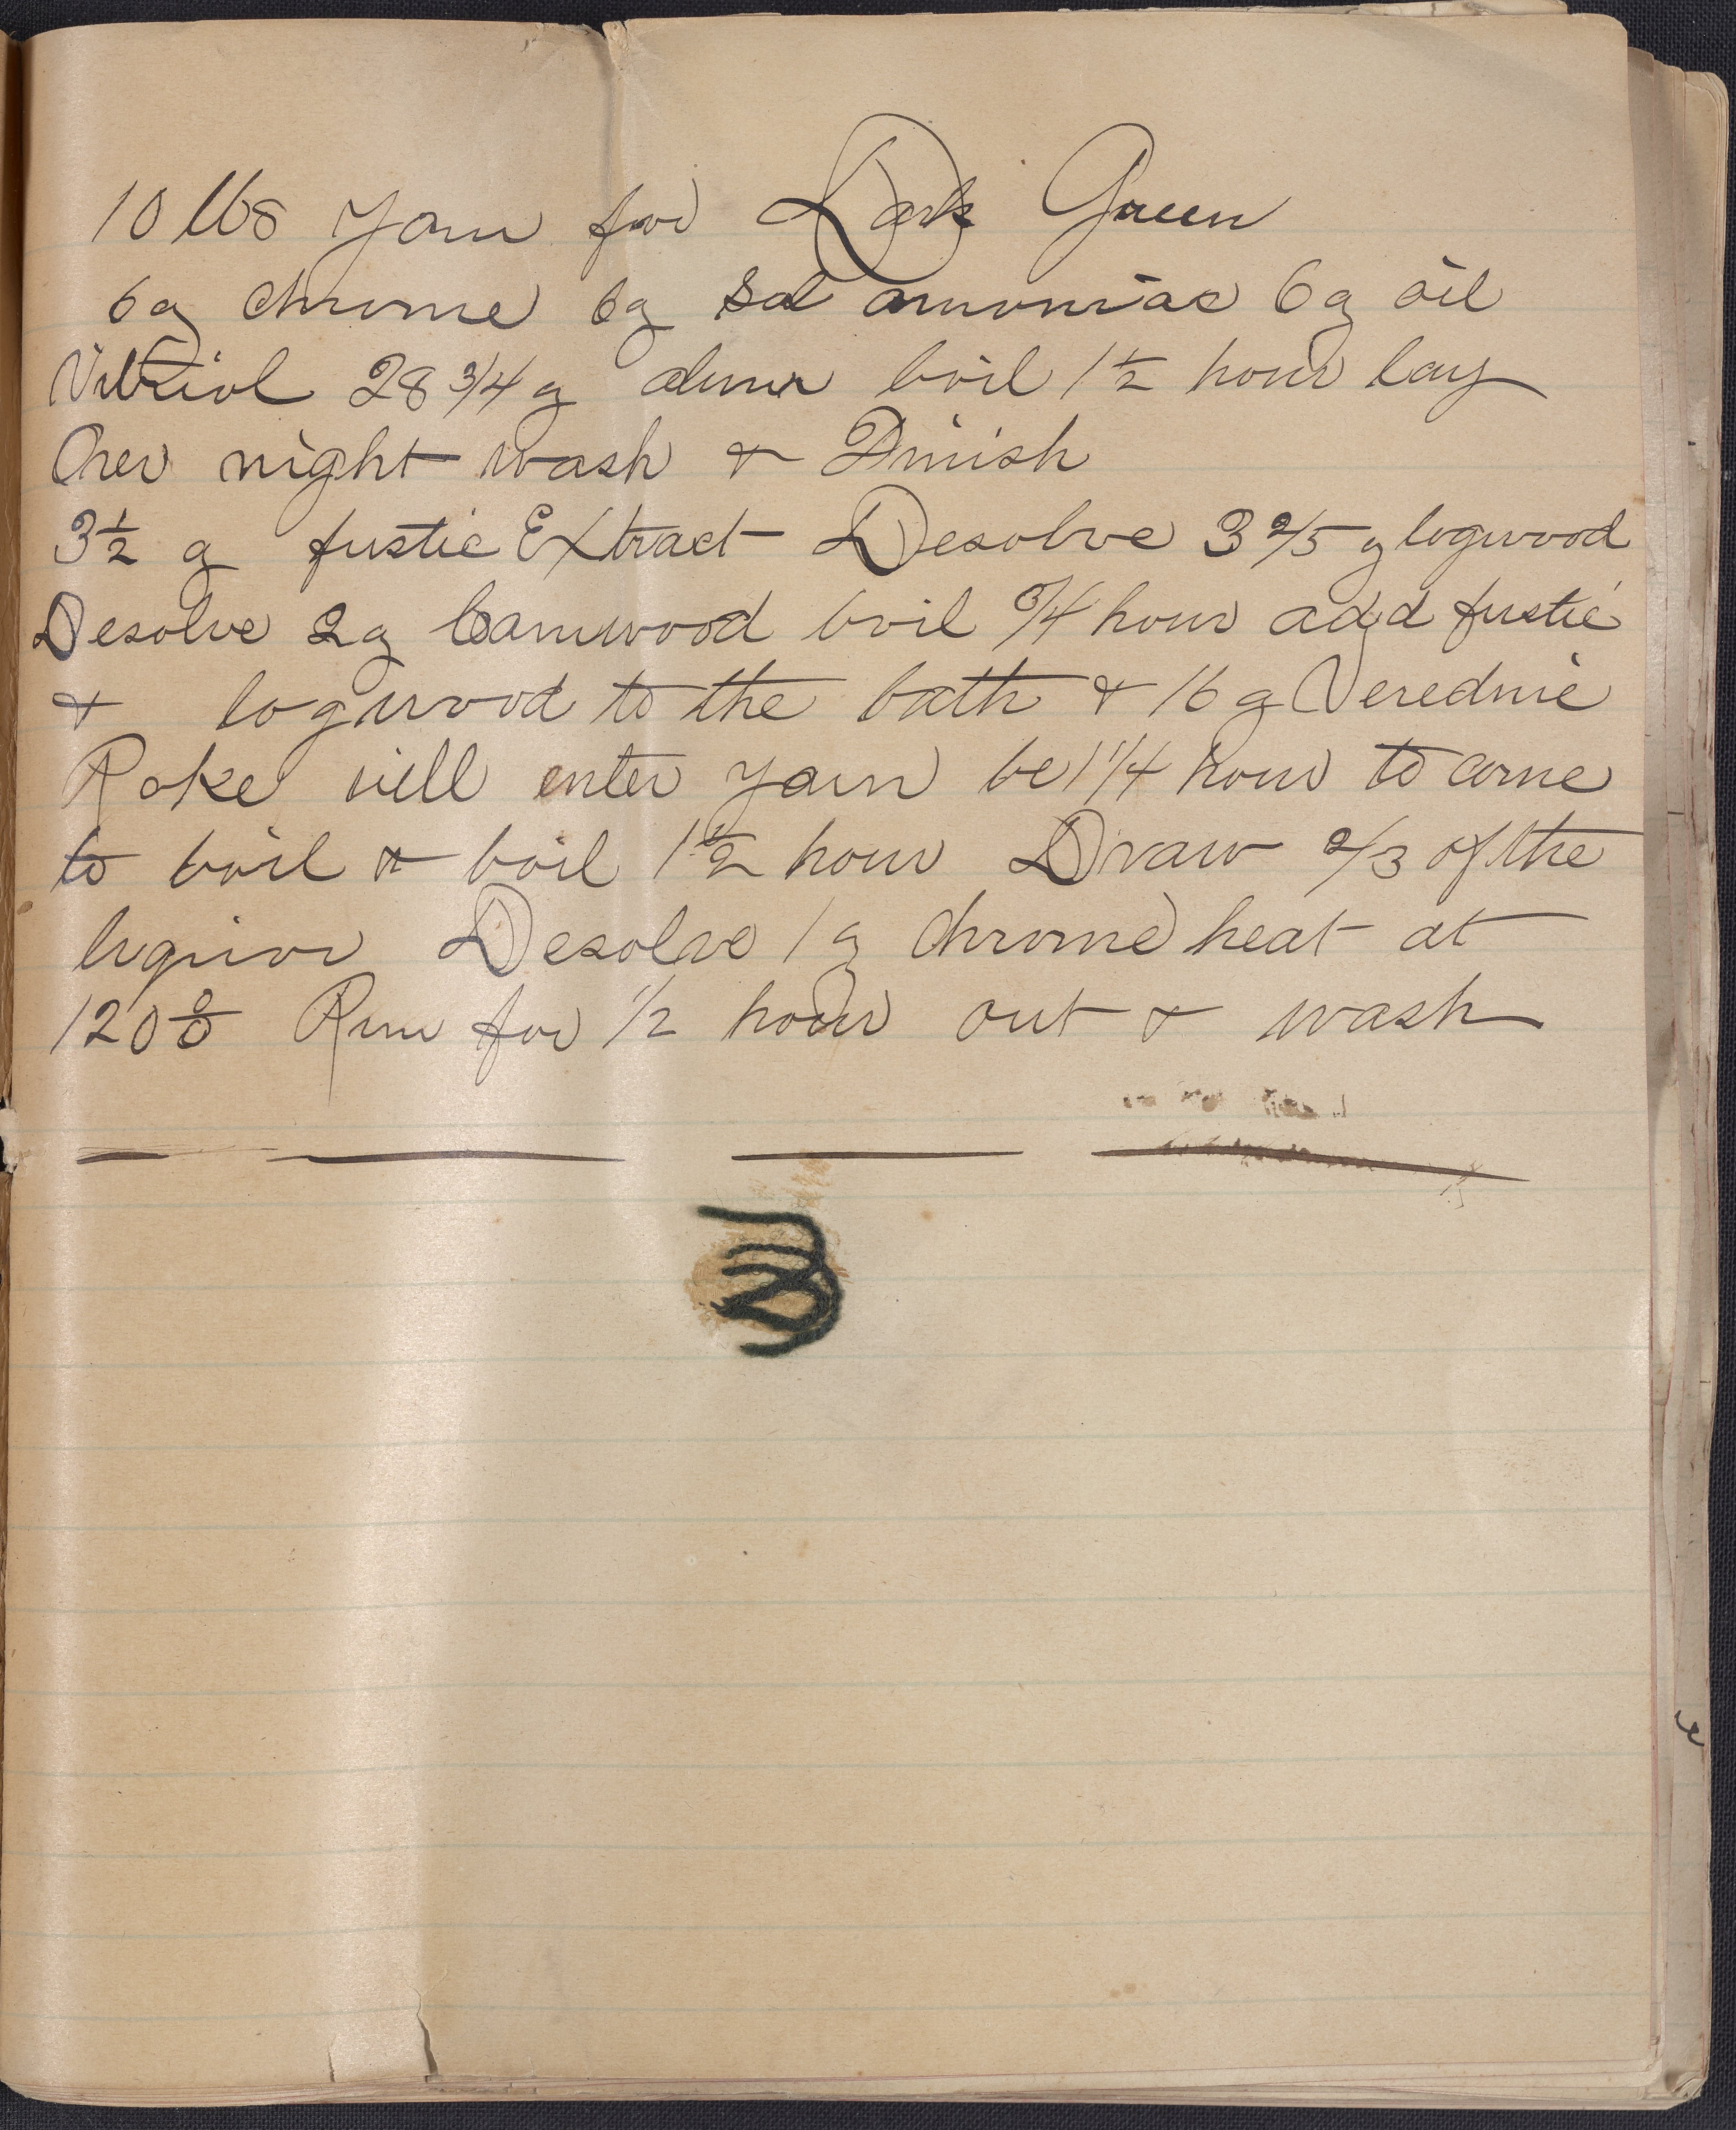 10 lbs Yarn for Dark Green
6 g chrome 6 g Sal amoniac 6 g oil
Vitriol 28 3/4 g alum boil 1 1/2 hour lay
Over night wash & Finish
3 1/2 g fustic Extract Desolve 3 2/5 g logwood
Desolve 2 g Camwood boil 3/4 hour add fustic
& logwood to the bath & 16 g Veredine
Rake well enter yarn be 1 1/4 hour to come
to boil & boil 1 1/2 hour Draw 2/3 of the
liquior Desolve 1 g chrome heat at
120 Run for 1/2 hour out & wash